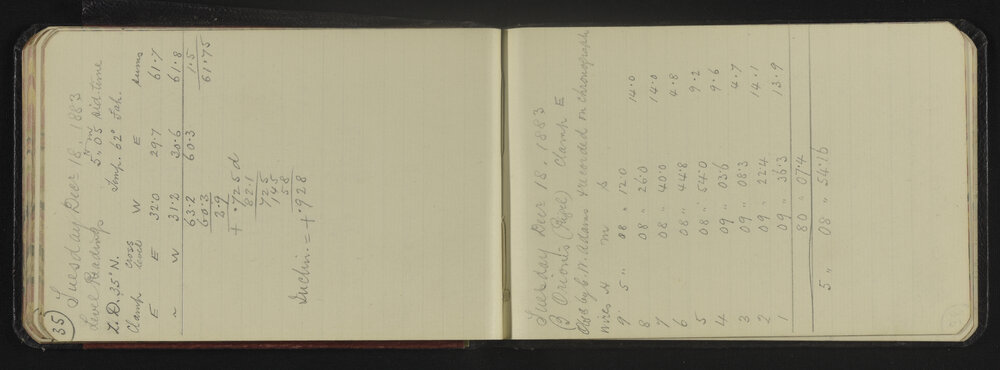 35
Tuesday Decr 18, 1883
Level Readings 5h 05m Sid. time
Z. D. 35° N. Temp. 62° Fah.
Clamp Cross level W E sums
E E 32.0 29.7 61.7
" W 31.2 30.6 61.8
63.2 60.3 1.5
60.3 61.75
2.9
+ .725 d
821
725
145
58
Inclin. = + .928
Tuesday Decr 18, 1883
B Orionis (Rigel) Clamp E
Obsd by C. N. Adams & recorded on chronograph
Wires h m s
9 5 " 08 " 12.0 14.0
8 08 " 26.0 14.0
7 08 " 40.0 4.8
6 08 " 44.8 9.2
5 08 " 54.0 9.6
4 09 " 03.6 4.7
3 09 " 08.3 14.1
2 09 " 22.4 13.9
1 09 " 36.3
80 " 07.4
5 " 08 " 54.16